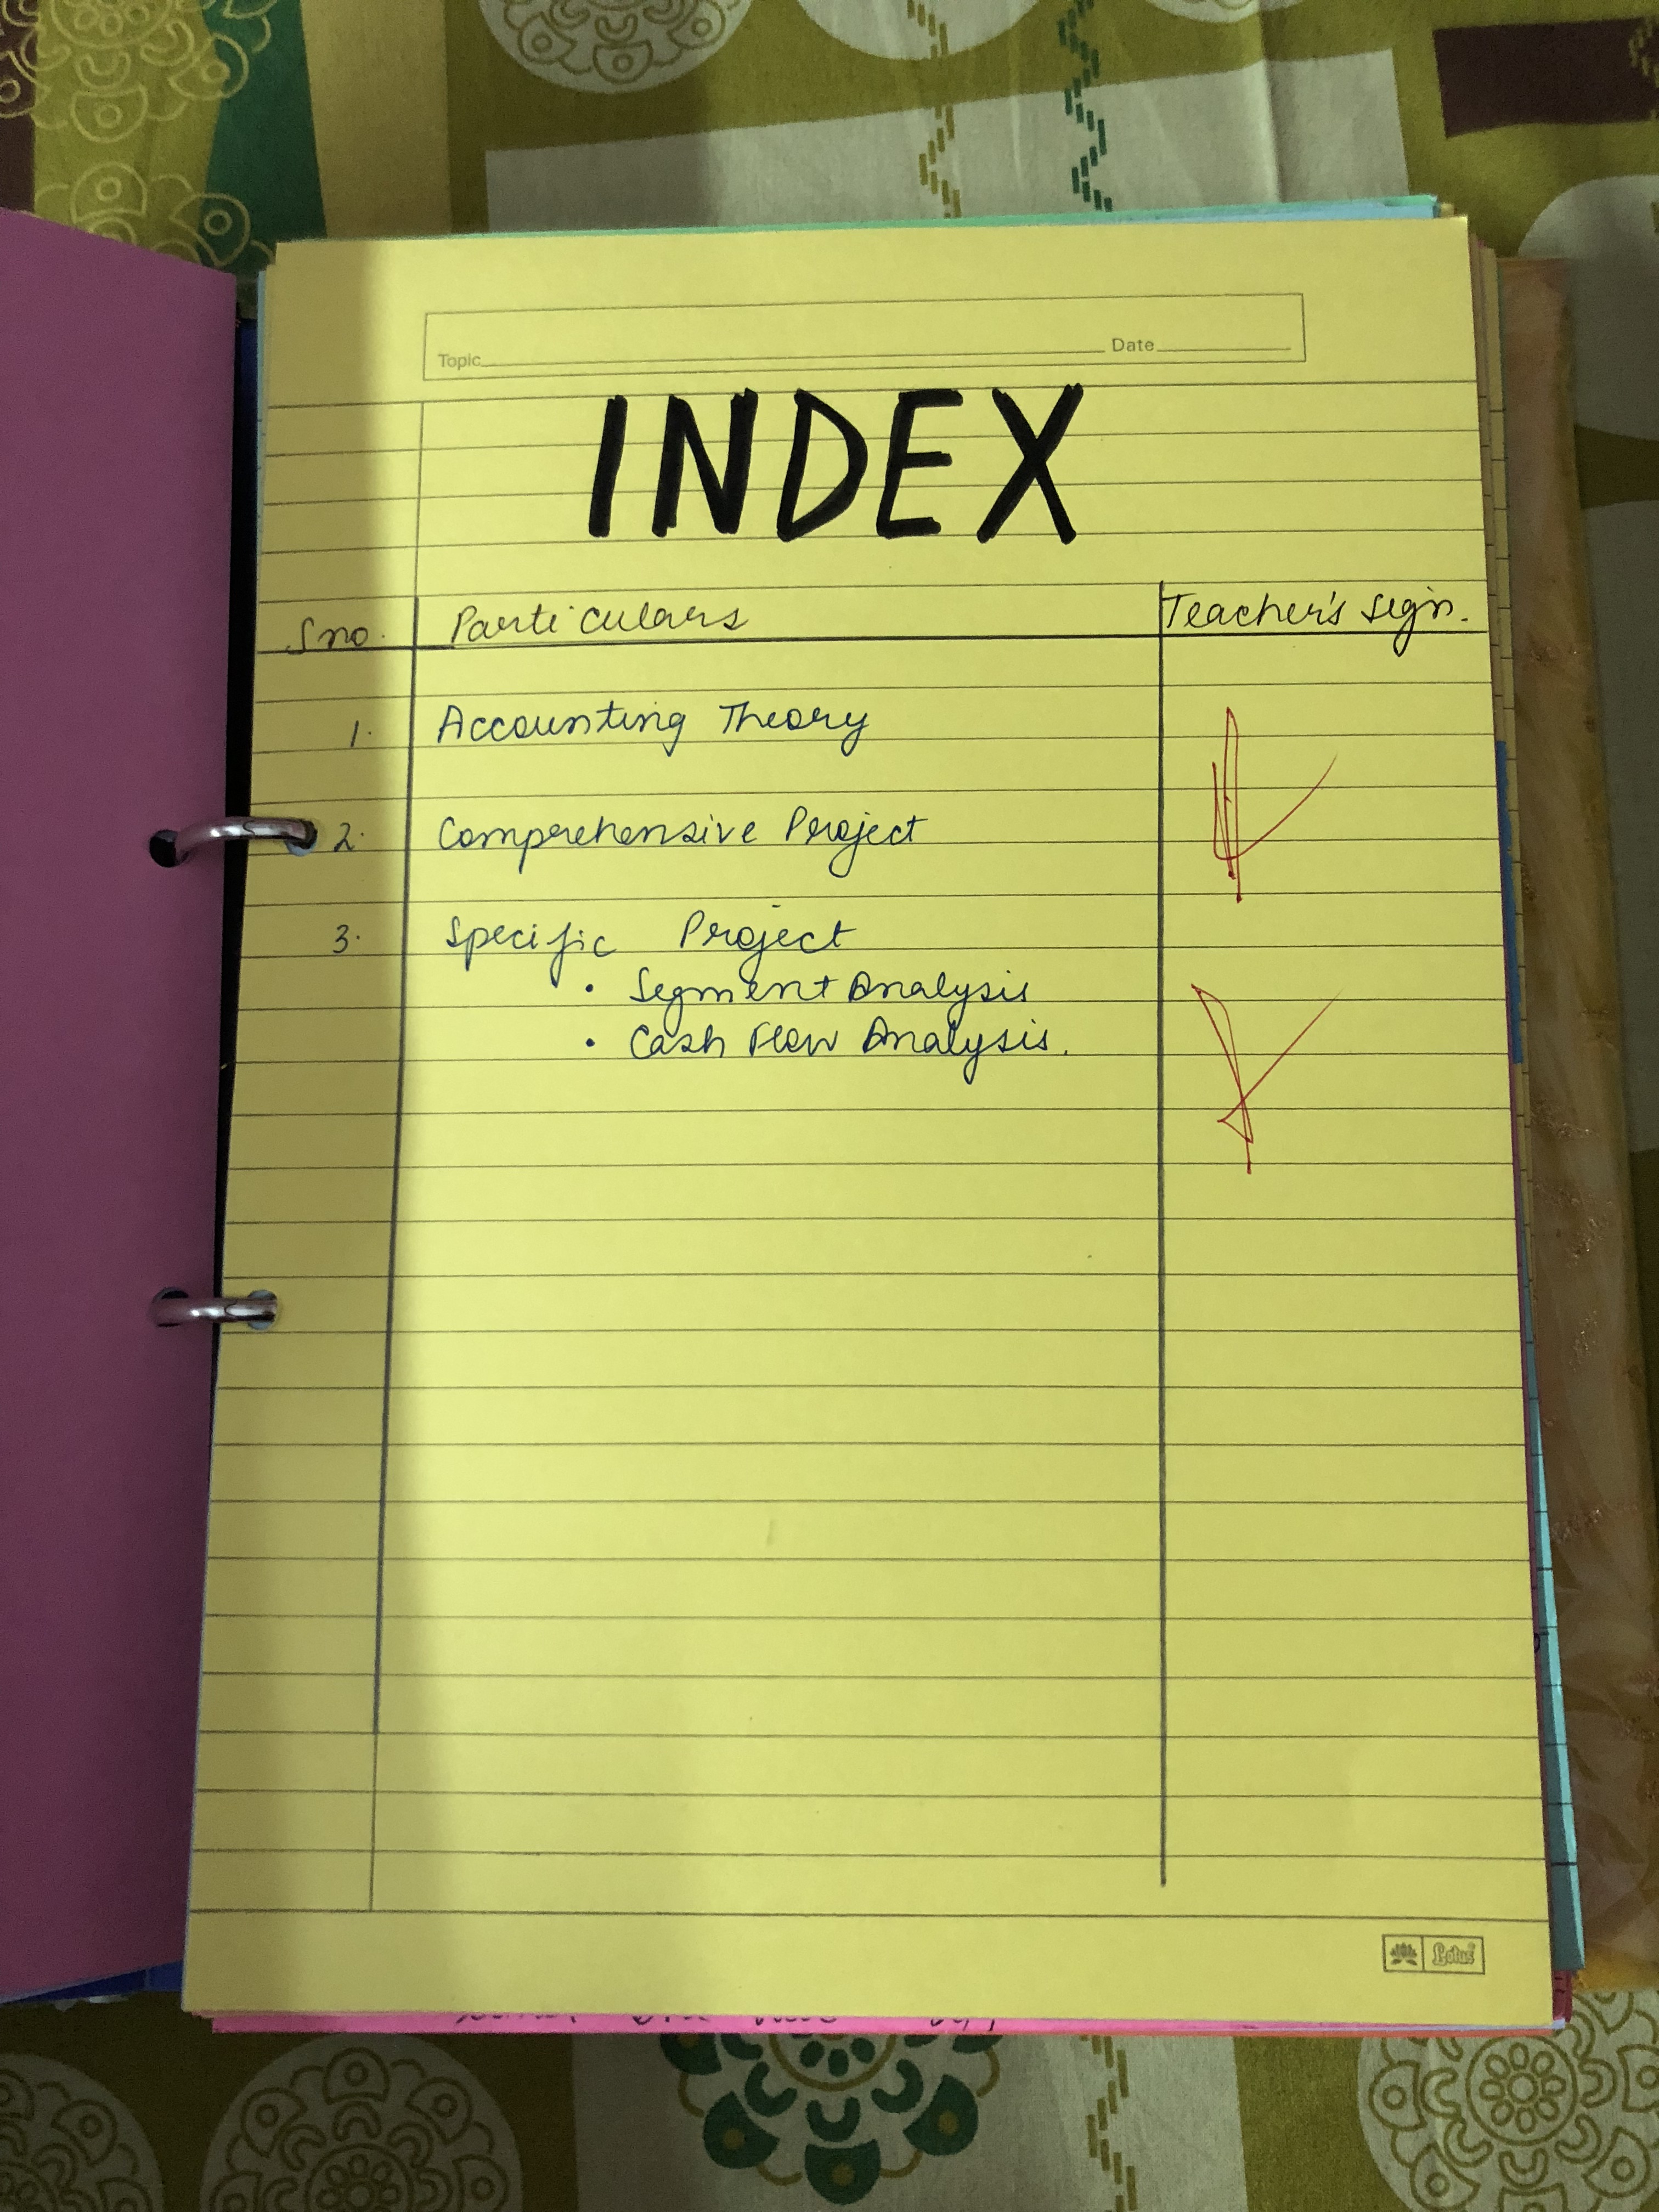 Topic Date
INDEX
S no. Particulars Teacher's Sign.
1. Accounting Theory
2. Comprehensive Project
3. Specific Project
• Segment Analysis
• Cash Flow Analysis.
Lotus